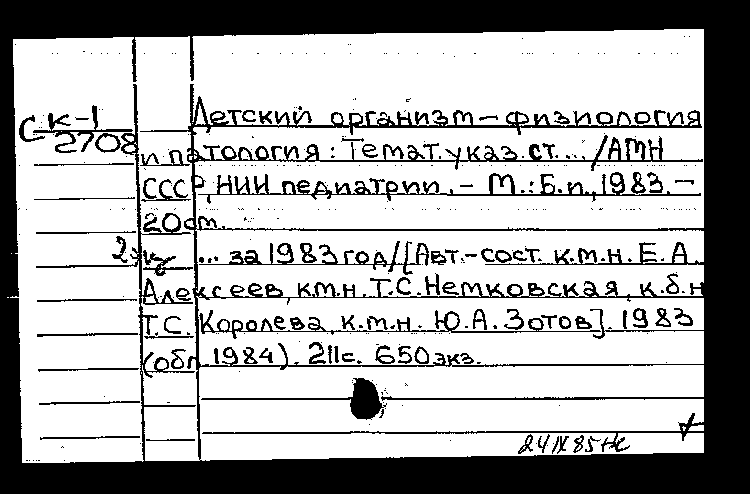 С К-1
2708
Детский организм – физиология
и патология: Темат. указ. ст... /АМН
СССР, НИИ педиатрии. – М.: Б.и., 1983. –
20 см.
... за 1983 год/[Авт.-сост. к.м.н. Е.А.
Алексеев, к.м.н. Т.С. Немковская, к.б.н
Т.С. Королева, к.м.н. Ю.А. Зотов]. 1983
(обл. 1984). 211с. 650 экз.
24 IX 85